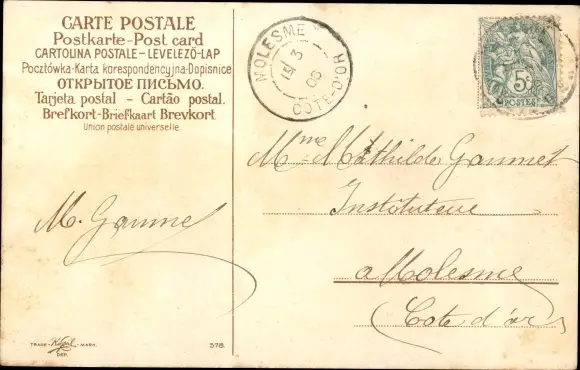 CARTE POSTALE
Postkarte-Post card
CARTOLINA POSTALE-LEVELEZŐ-LAP
Pocztówka-Karta korespondencyjna-Dopisnice
ОТКРЫТОЕ ПИСЬМО.
Tarjeta postal - Cartão postal.
Brefkort-Briefkaart Brevkort
Union postale universelle.
MOLESME
3
06
COTE-D'OR
5c
POSTES
Mme Mathilde Gaumet
Institutrice
a Molesme
Cote d'or
M. Gaumet
TRADE MARK.
DEP.
578.